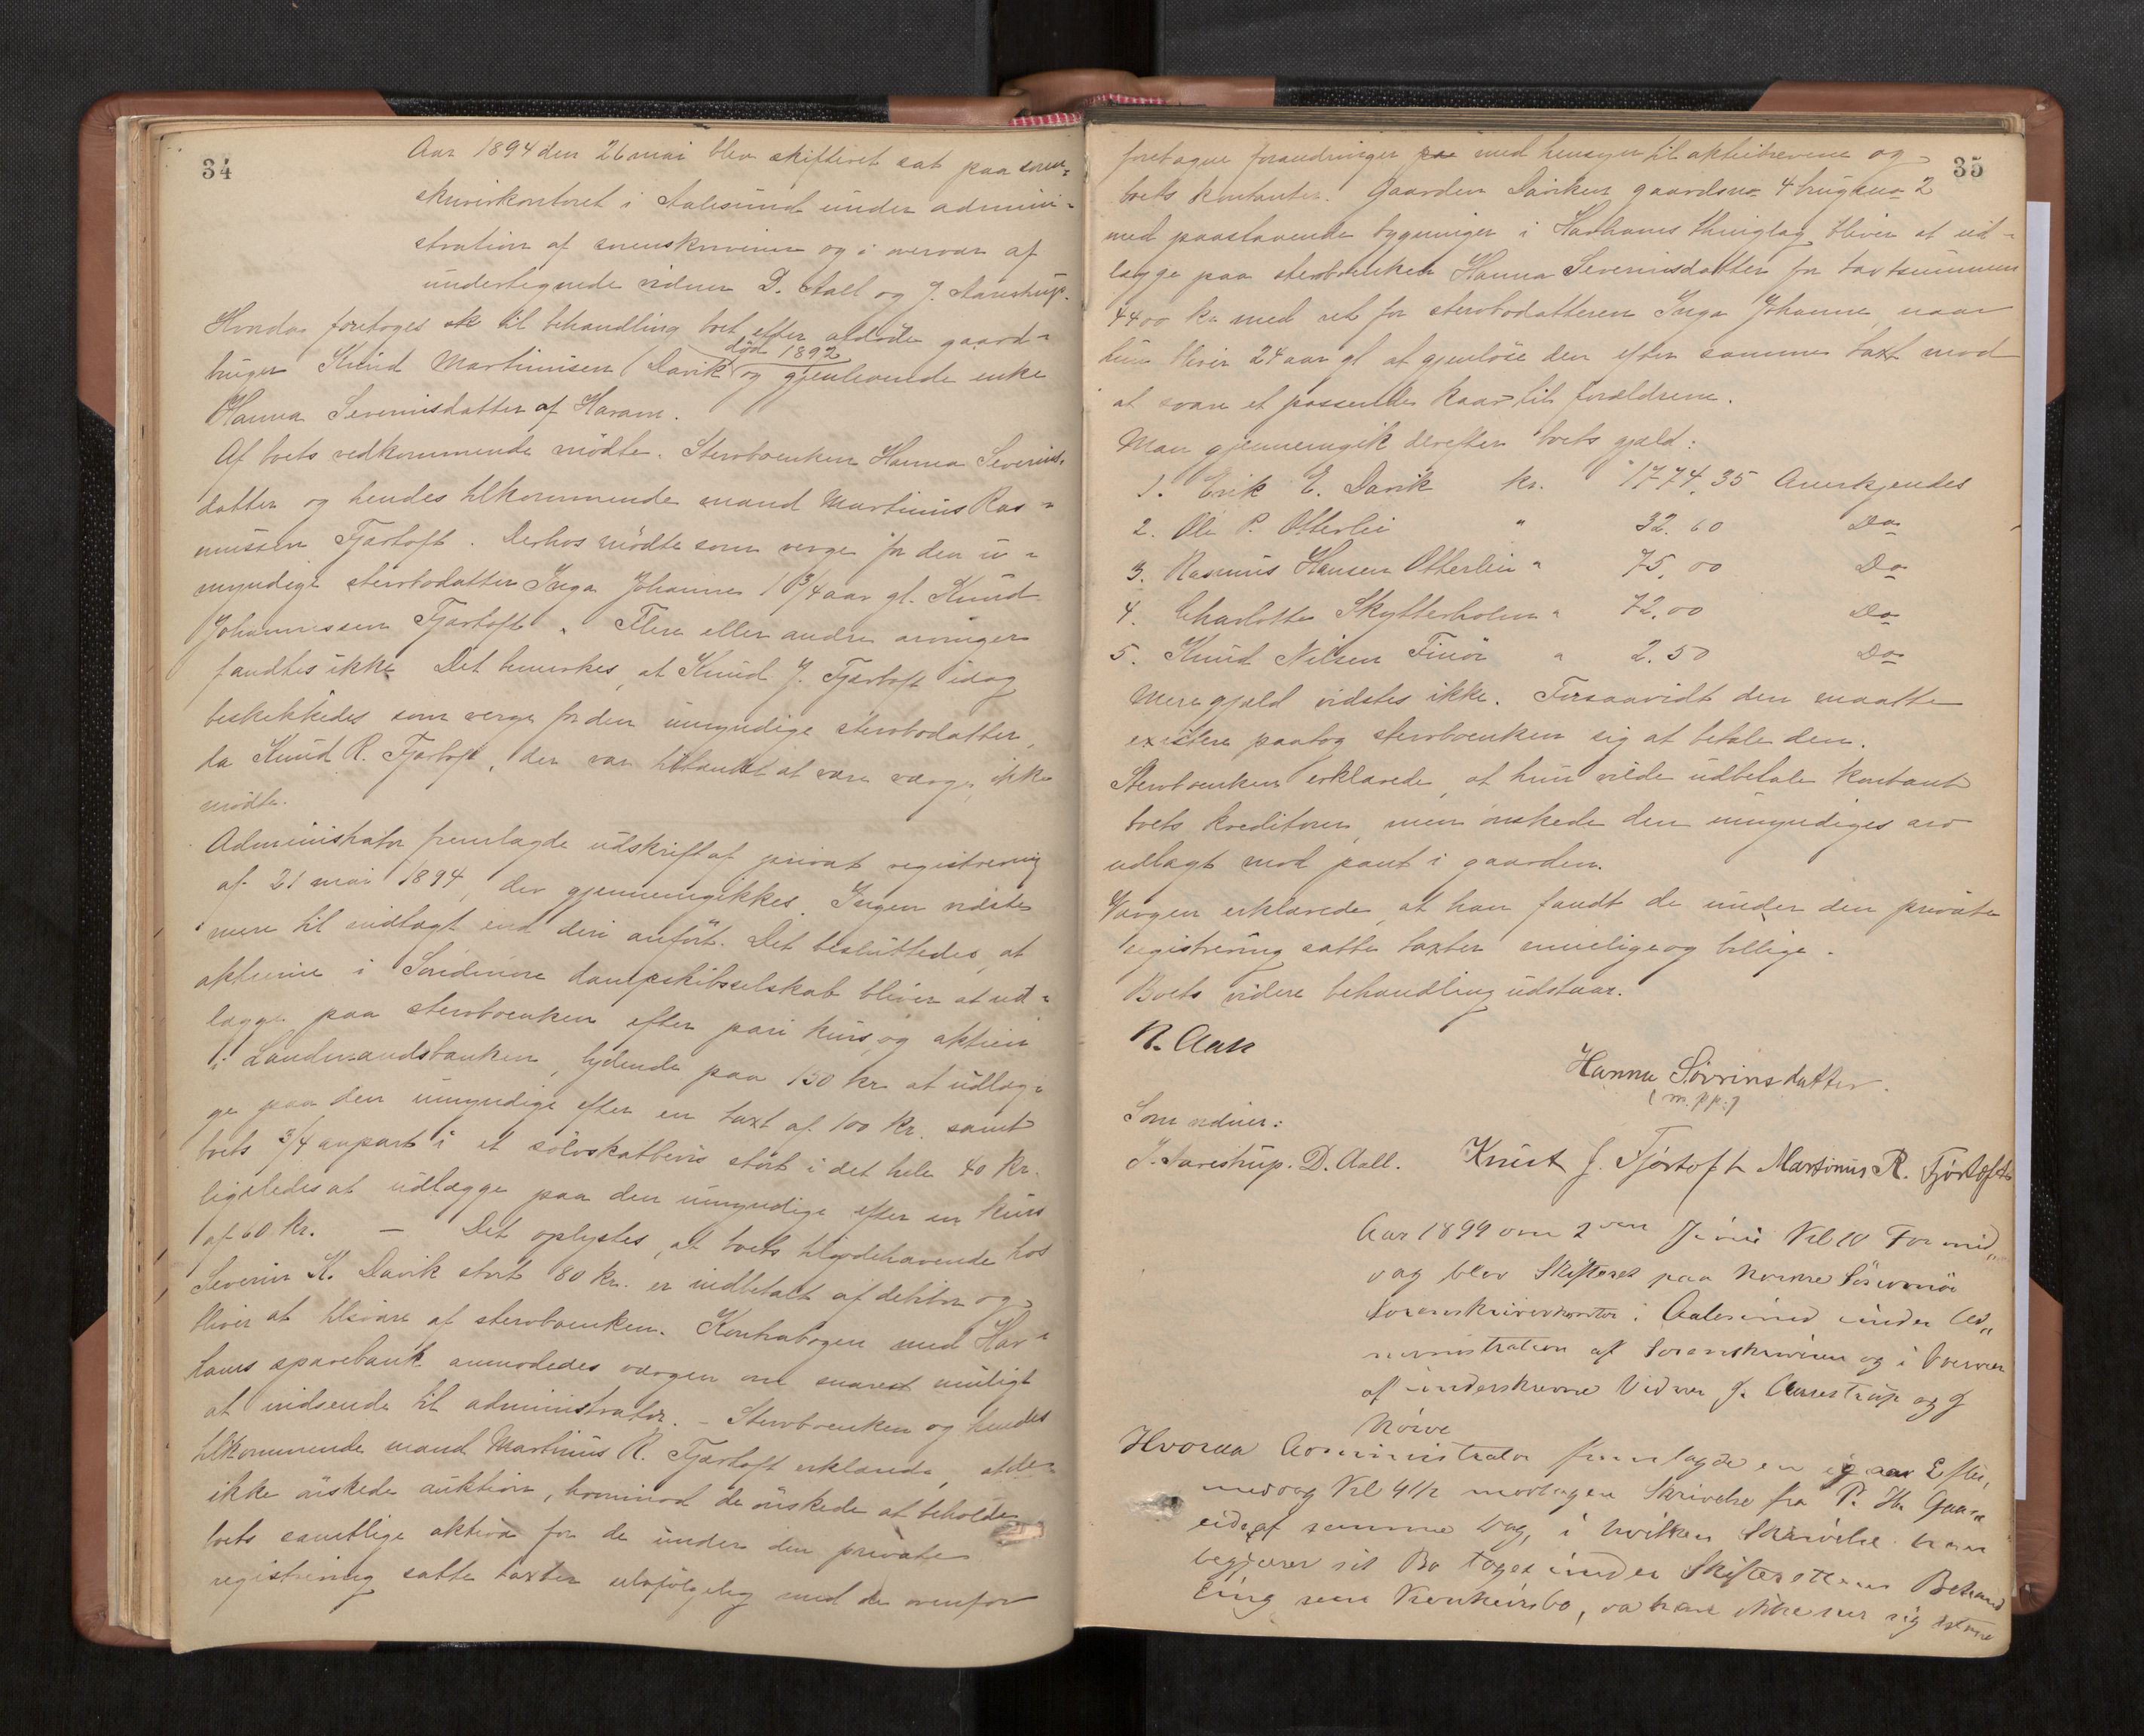 34
Aar 1894 den 26 mai blev skifteret sat paa soren-
skriverkontoret i Aalesund under admini-
stration af sorenskriveren og i overvær af
undertegnede vidner D. Aall og J. Aarestrup.
Hvorda foretoges sk til behandling boet efter afdöde gaard-
död 1892
bruger Knud Martinusen Davik og gjenlevende enke
Hanna Severinsdatter af Haram.
Af boets vedkommende mödte. Sterboenken Hanna Severins-
datter og hendes tilkommende mand Martinus Ras-
mussen Fjærtoft. Derhos mödte som verge for den u-
myndige sterbodatter Inga Johanne 1 3/4 aar gl. Knud
Johannessen Fjærtoft. Flere eller andre arvinger
fandtes ikke. Det bemerkes, at Knud J. Fjærtoft idag
beskikkedes som verge for den umyndige sterbodatter,
da Knud R. Fjærtoft, der var tiltænkt at være værge, ikke
mödte.
Administrator fremlagde udskrift af privat registrering
af 21 mai 1894, der gjennemgikkes. Ingen vidste
mere til indtægt end deri anfört. Det besluttedes, at
aktierne i Söndmöre dampskibsselskab bliver at ud-
lægge paa sterboenken efter pari kurs, og aktien
i Landmandsbanken, lydende paa 150 kr at udlæg-
ge paa den umyndige efter en taxt af 100 kr. samt
boets 3/4 anpart i et sölvskatbevis stort i det hele 40 kr.
ligeledes at udlægge paa den umyndige efter en kurs
af 60 kr. — Det oplystes, at boets tilgodehavende hos
Severin K. Davik stort 80 kr. er indbetalt af debitor og
bliver at tilsvare af sterboenken. Kontrabogen med Har-
hams sparebank anmodedes værgen om snarest muligt
at indsende til administrator. - Sterboenken og hendes
tilkommende mand Martinus R. Fjærtoft erklærede, at de
ikke önskede auktion, hvorimod de önskede at beholde
boets samtlige aktiva for de under den private
registrering satte taxter selvfölgelig med de ovenfor
35
foretagne forandringer paa med hensyn til aktiebrevene og
boets kontanter. Gaarden Daviken gaardsno 4 brugsno 2
med paastaaende bygninger i Harhams thinglag bliver at ud-
lægge paa sterboenken Hanna Severinsdatter for taxtsummen
4400 kr med ret for sterbodatteren Inga Johanne, naar
hun bliver 24 aar gl. at gjenlöse den efter samme taxt mod
at svare et passende kaar til forældrene.
Man gjennemgik derefter boets gjæld:
1. Erik E. Davik kr. 1774,35 Anerkjendes
2. Ole P. Otterlei " 32.60 Do
3. Rasmus Hansen Otterlei " 75,00 Do
4. Charlotte Skytterholm " 72,00 Do
5. Knud Nilsen Finör " 2.50 Do
Mere gjæld vidstes ikke. Forsaavidt den maatte
existere paatog sterboenken sig at betale den.
Sterboenken erklærede, at hun vilde udbetale kontant
boets kreditorer, men önskede den umyndiges arv
udlagt mod pant i gaarden.
Værgen erklærede, at han fandt de under den private
registrering satte taxter rimelige og billige.
Boets videre behandling udstaar.
N. Aall
Hanna Sövrinsdatter.
(m. p. p.)
Som vidner:
J. Aarestrup. D. Aall. Knut J. Fjörtoft Martinus R. Fjörtoft
Aar 1894 den 2den Juni Kl 10 Formid„
dag blev Skifteret paa Nordre Söndmör
Sorenskriverkontor i Aalesund under Ad„
ministration af Sorenskriveren og i Overvær
af underskrevne Vidner J. Aarestrup og J
Nörve
Hvorda Administrator fremlagde en igaar Efter„
middag Kl 4 1/2 modtagen Skrivelse fra P. Gaar„
eide af samme Dag, i hvilken Skrivelse han
begjærer sit Bo taget under Skifterettens Behand
ling som Konkursbo, da han ikke ser sig istand